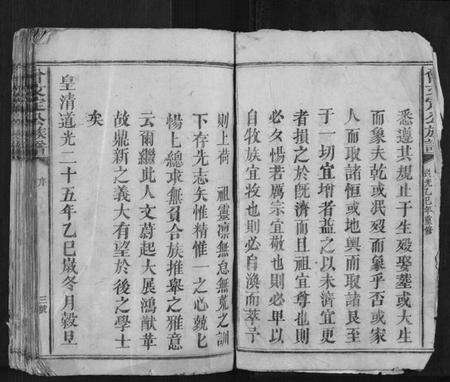 悉遵其規止于生殁娶墓或大生
而象夬乾或殁而象乎否或家
人而取諸恒或地輿而取諸艮至
于一切宜增者益之以未濟宜更
者損之於旣濟而且祖宜尊也則
必夊惕若厲宗宜敬也則必卑以
自牧族宜收也則必自渙而萃予
則上荷 祖靈凜無怠無荒之訓
下存先志矢惟精惟一之心兢匕
惕上總求無負合族推舉之雅意
云爾繼此人文蔚起大展鴻猷革
故鼎新之義大有望於後之學士
矣
皇清道光二十五年乙巳歲冬月穀旦
曾文定公族譜
序
三號
道光乙巳年重修